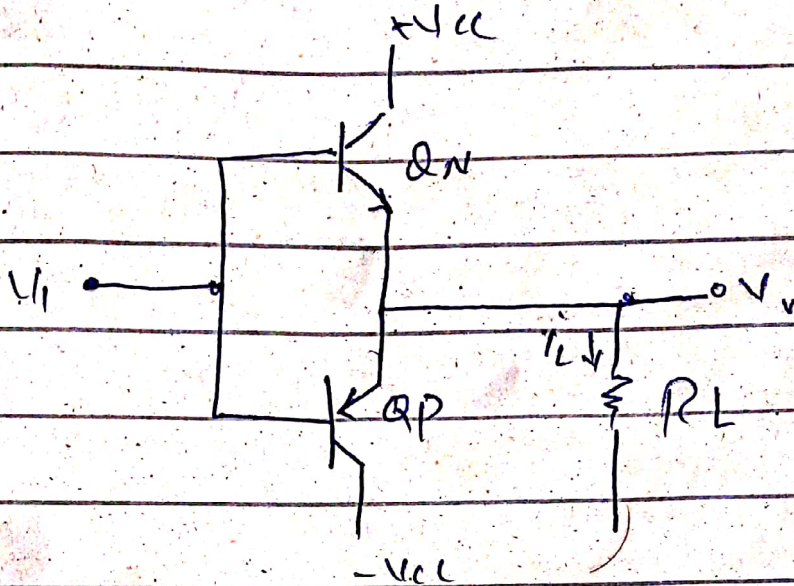 +Vcc
QN
VI
iL
QP
RL
-Vcc